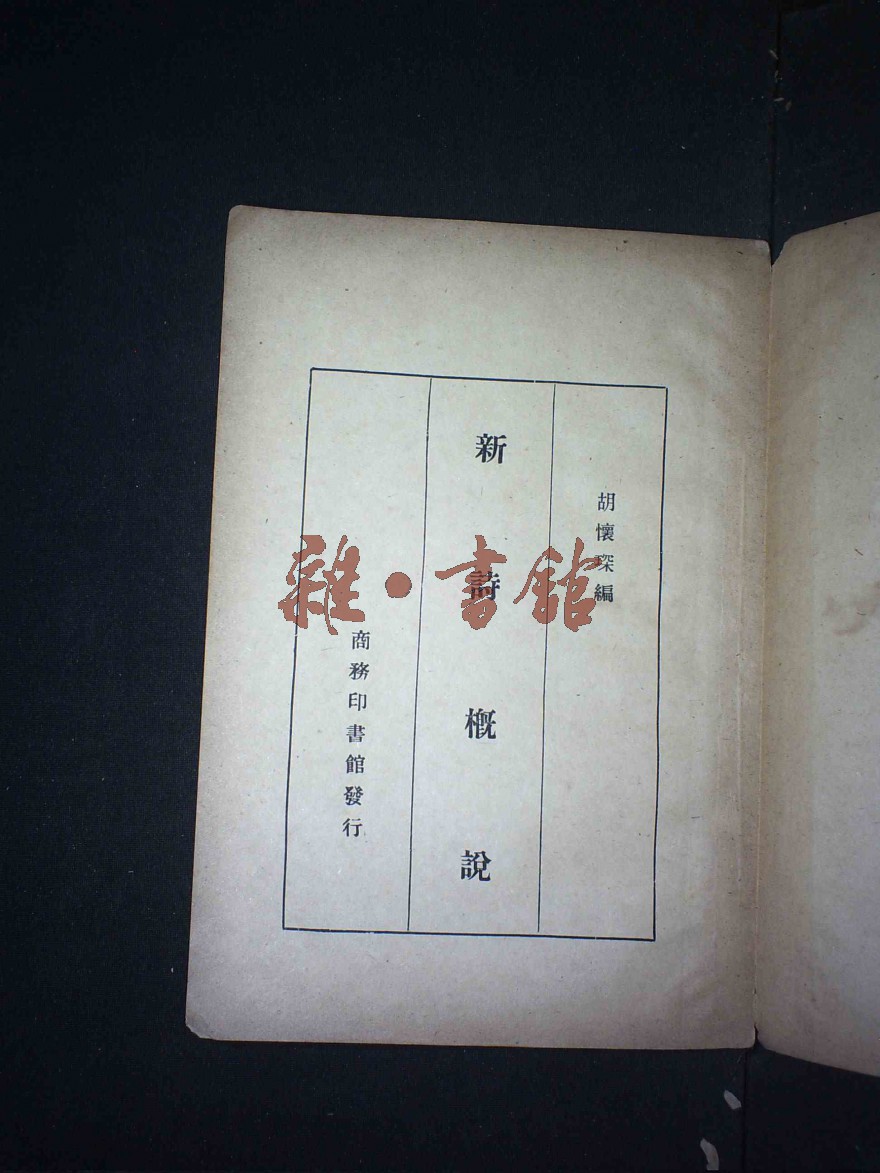 胡懷琛編
新詩概說
商務印書館發行
雜·書館